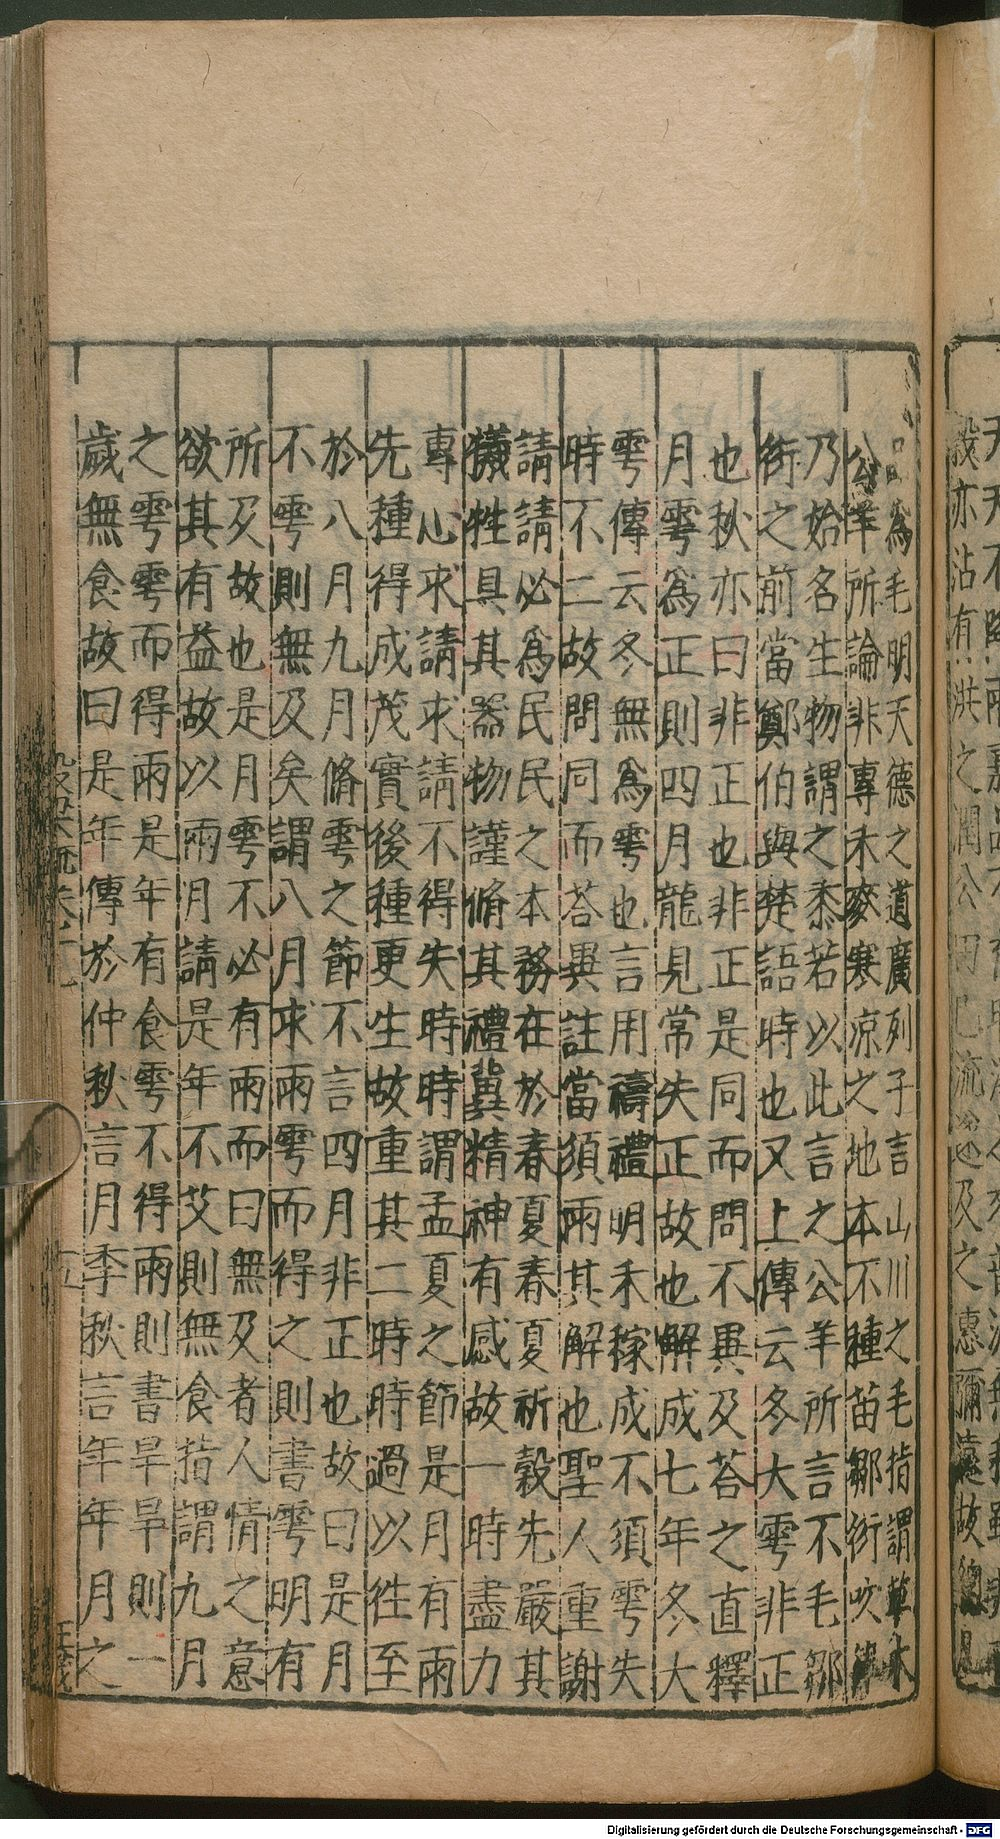 為毛明天德之道廣列子言山川之毛指謂草木
公羊所論非專未麥寒凉之地本不種苗鄒衍吹
乃始名生物謂之黍若以此言之公羊所言不毛鄒
衍之前當鄭伯與楚語時也又上傳云冬大雩非正
也秋亦曰非正也非正是同而問不異及荅之直釋
月雩為正則四月龍見常失正故也解成七年冬大
雩傳云冬無為雩也言用禱禮明禾稼成不須雩失
時不二故問同而荅異註當須雨其解也聖人重謝
請請必為民民之本務在於春夏春夏祈穀先嚴其
犧牲具其器物謹脩其禮冀精神有感故一時盡力
專心求請求請不得失時時謂孟夏之節是月有雨
先種得成茂實後種更生故重其二時時過以往至
於八月九月脩雩之節不言四月非正也故曰是月
不雩則無及矣謂八月求雨雩而得之則書雩明有
所及故也是月雩不必有雨而曰無及者人情之意
欲其有益故以雨月請是年不艾則無食指謂九月
之雩雩而得雨是年有食雩不得雨則書旱旱則一
歲無食故曰是年傳於仲秋言月季秋言年年月之
Digitalisierung gefördert durch die Deutsche Forschungsgemeinschaft - DFG